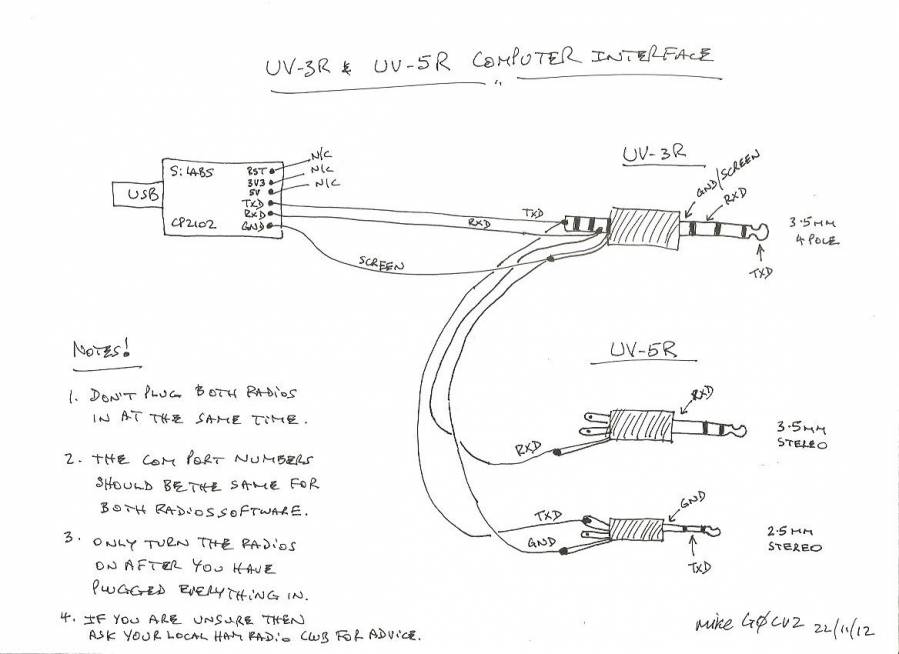 UV-3R & UV-5R COMPUTER INTERFACE
UV-3R
N/C
N/C
N/C
Si LABS
RST
3V3
5V
TXD
RXD
GND
USB
CP2102
TXD
RXD
SCREEN
GND/SCREEN
RXD
3.5MM
4 POLE
TXD
UV-5R
RXD
3.5MM
STEREO
RXD
TXD
GND
GND
2.5MM
STEREO
TXD
NOTES!
1. DON'T PLUG BOTH RADIOS
IN AT THE SAME TIME.
2. THE COM PORT NUMBERS
SHOULD BE THE SAME FOR
BOTH RADIOS SOFTWARE.
3. ONLY TURN THE RADIOS
ON AFTER YOU HAVE
PLUGGED EVERYTHING IN.
4. IF YOU ARE UNSURE THEN
ASK YOUR LOCAL HAM RADIO CLUB FOR ADVICE.
Mike GØCVZ 22/11/12